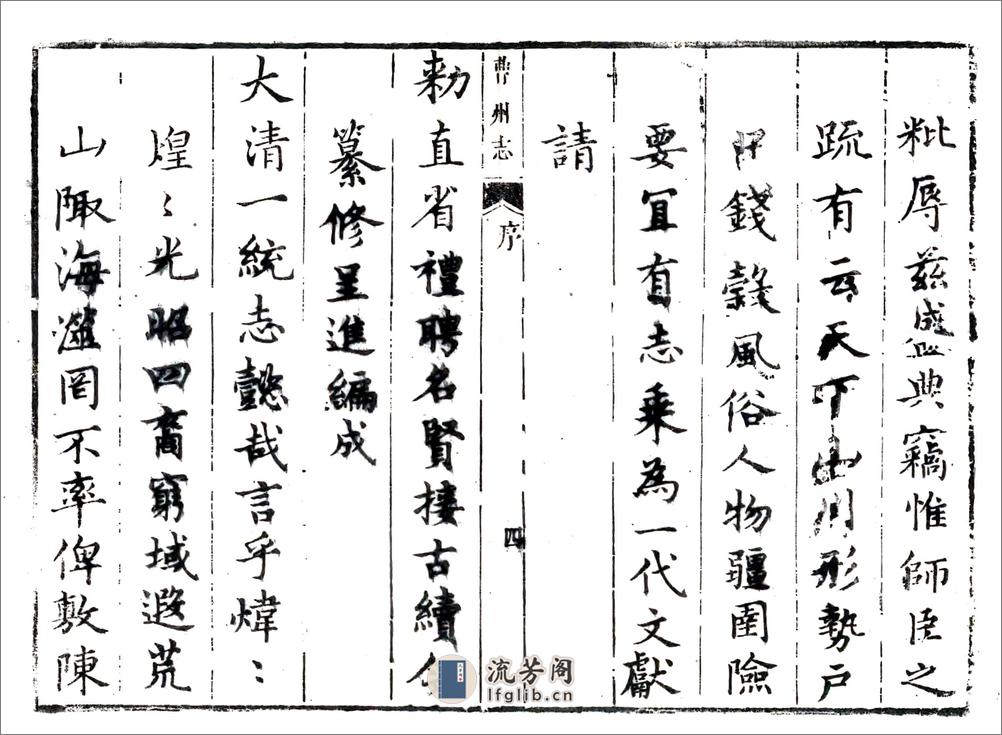 粃辱茲盛典竊惟師臣之
疏有云天下山川形勢戶
口錢穀風俗人物疆圉險
要宜有志乘為一代文獻
請
曹州志 序 四
勅直省禮聘名賢接古續今
纂修呈進編成
大清一統志懿哉言乎煒〻
煌〻光昭四裔窮域遐荒
山陬海澨罔不率俾敷陳
流芳阁
lfglib.cn